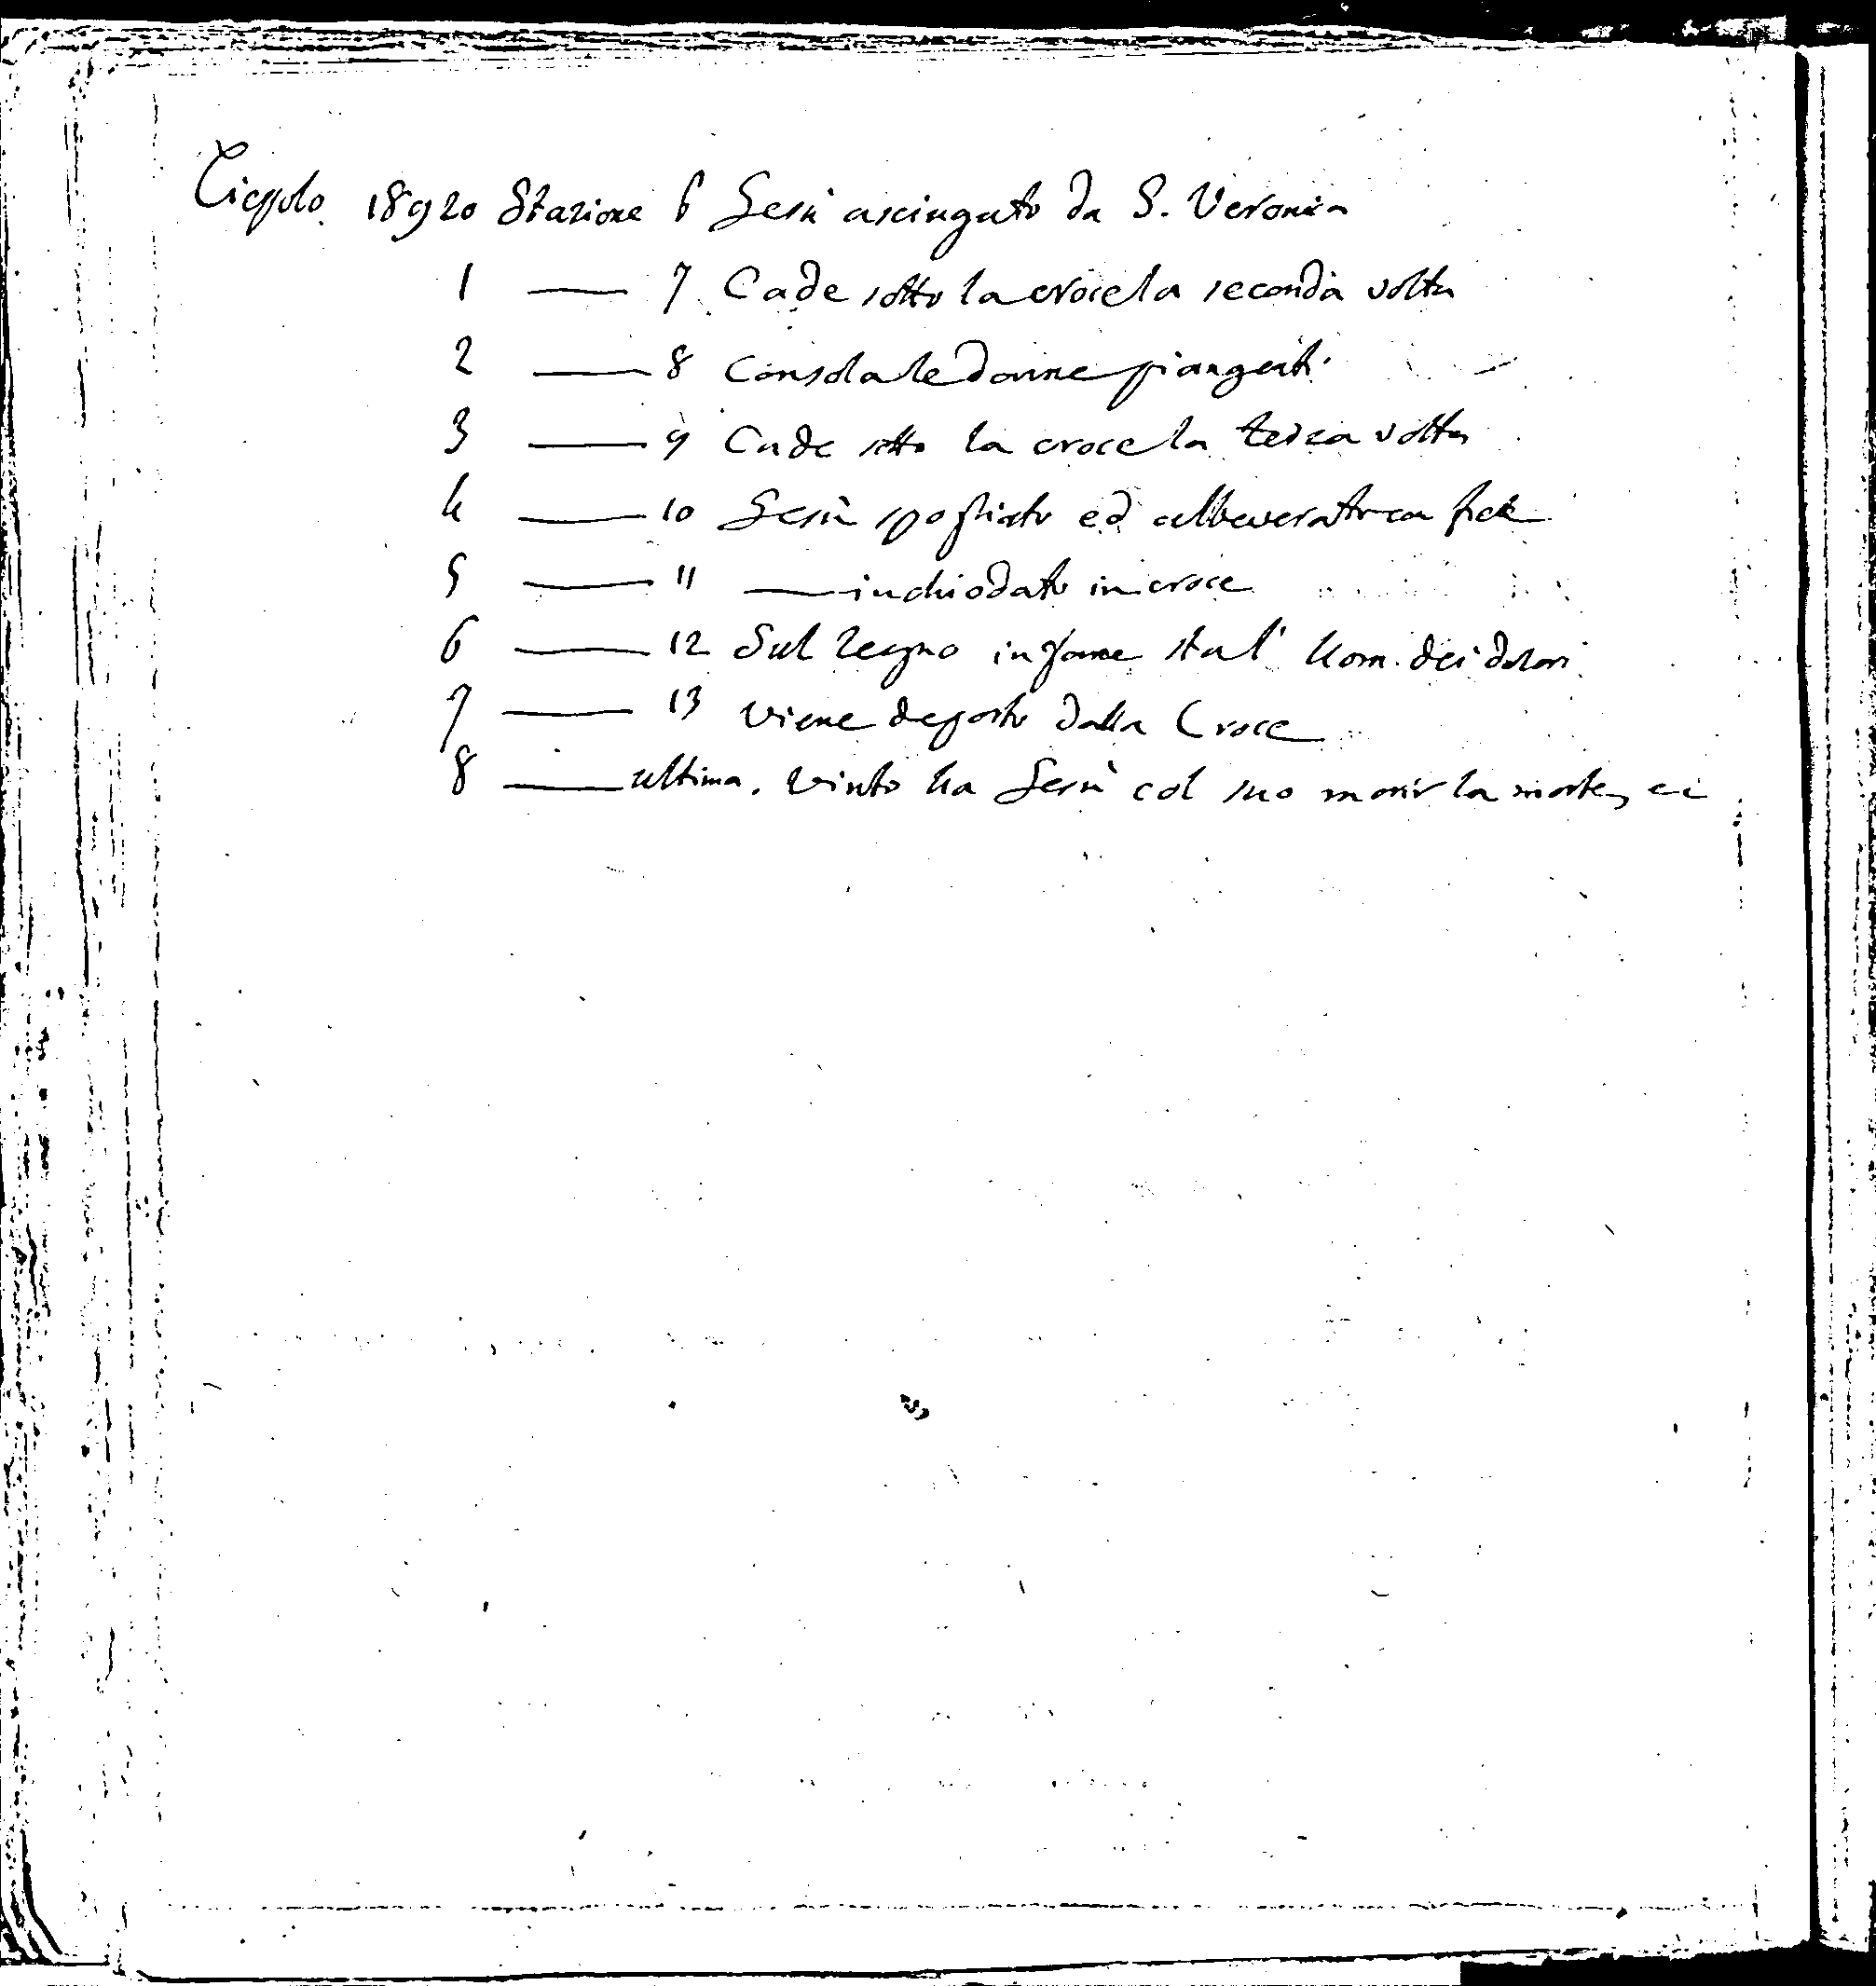 Tiepolo 18920 Stazione 6 Gesù asciugato da S. Veronica
1 — 7 Cade sotto la croce la seconda volta
2 — 8 Consola le donne piangenti
3 — 9 Cade sotto la croce la terza volta
4 — 10 Gesù spogliato ed abbeverato con fiele
5 — 11 — inchiodato in croce
6 — 12 Sul legno infame sta l' Uom dei dolori
7 — 13 viene deposto dalla Croce
8 — ultima. Vinto ha Gesù col suo morir la morte,